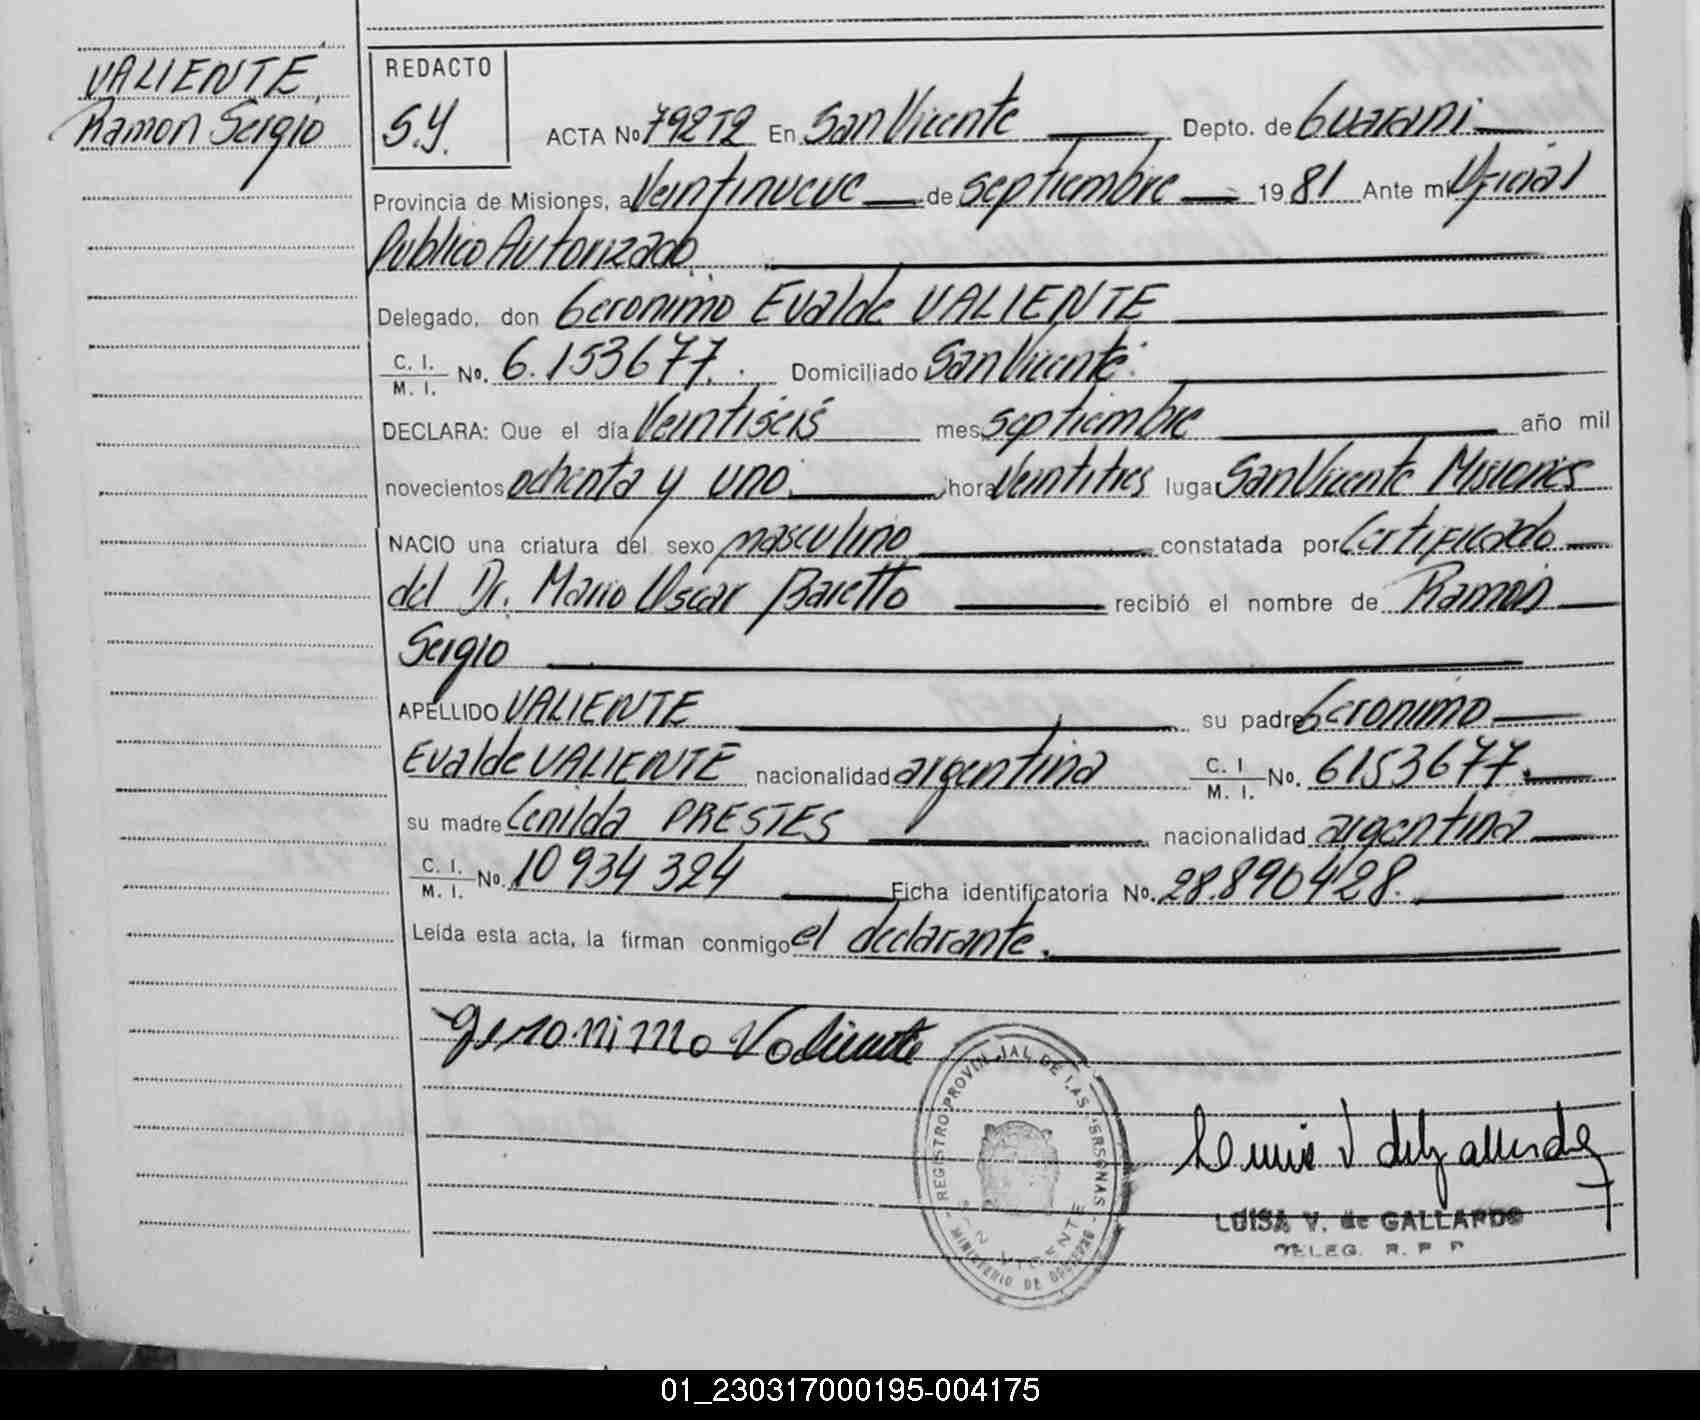 VALIENTE
Ramon Sergio
REDACTO
S.Y.
ACTA No 792T2 En San Vicente Depto. de Guarani
Provincia de Misiones, a Veintinueve de septiembre 19 81 Ante mi Oficial
Publico Autorizado
Delegado, don Geronimo Evalde VALIENTE
C. I. / M. I. No. 6.153677. Domiciliado San Vicente.
DECLARA: Que el día Veintiseis mes septiembre año mil
novecientos ochenta y uno. hora Veintitres lugar San Vicente Misiones
NACIO una criatura del sexo masculino constatada por Certificado
del Dr. Mario Oscar Baretto recibió el nombre de Ramon
Sergio
APELLIDO VALIENTE su padre Geronimo
Evalde VALIENTE nacionalidad argentina C. I / M. I. No. 6153677.
su madre Cenilda PRESTES nacionalidad argentina
C. I. / M. I. No. 10934324 Ficha identificatoria No. 28.890428.
Leída esta acta, la firman conmigo el declarante.
Geronimo Valiente
REGISTRO PROVINCIAL DE LAS PERSONAS
SAN VICENTE
MINISTERIO DE GOBIERNO
LUISA V. de GALLARDO
DELEG. R. P. P
01_230317000195-004175